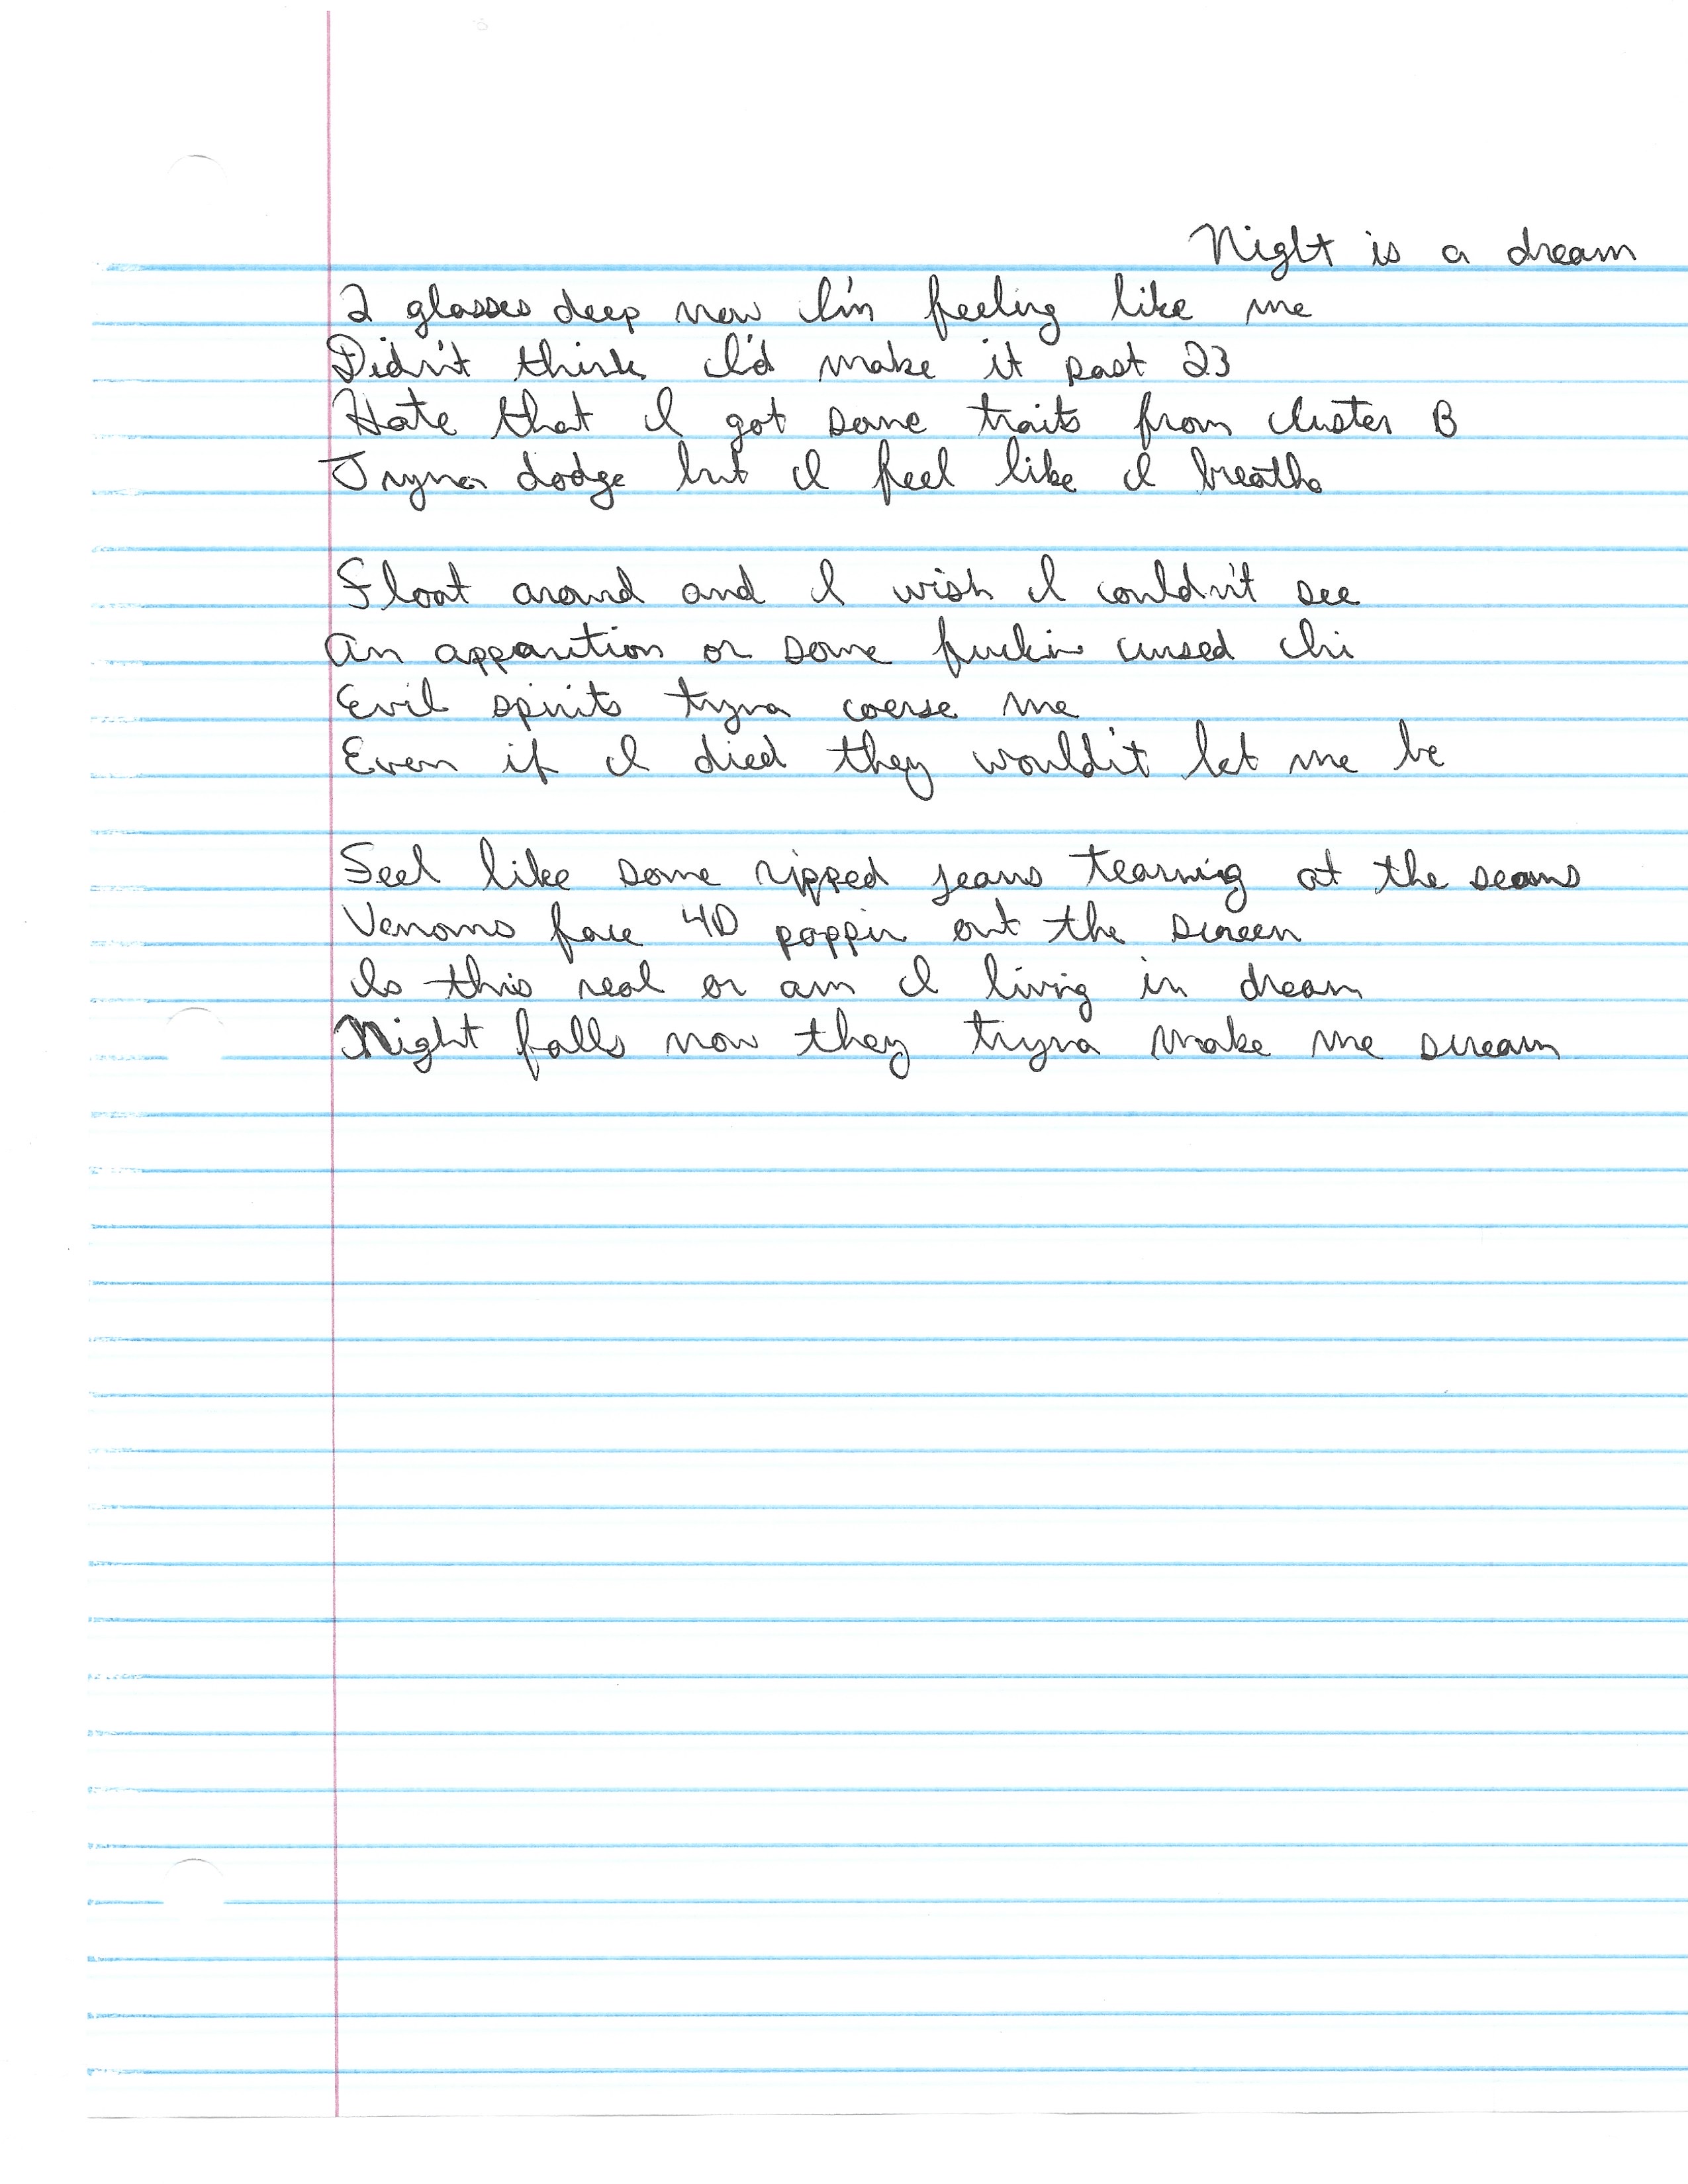 Night is a dream
2 glasses deep now I'm feeling like me
Didn't think I'd make it past 23
Hate that I got some traits from cluster B
Tryna dodge but I feel like I breathe
Float around and I wish I couldn't see
An apparition or some fuckin cursed chi
Evil spirits tryna coerse me
Even if I died they would't let me be
Feel like some ripped jeans tearning at the seams
Venoms face 4D poppin out the screen
Is this real or am I living in dream
Night falls now they tryna make me scream